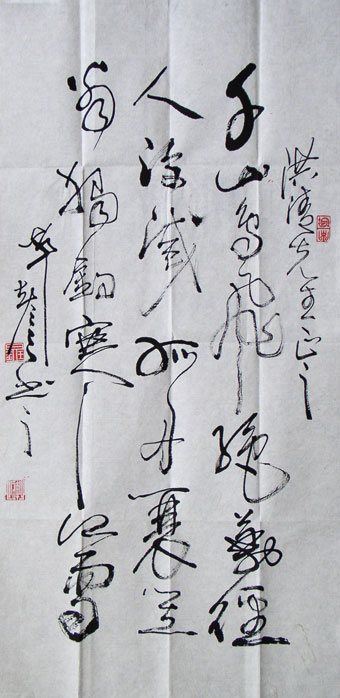 洪先生正之
千山鳥飛絕萬徑
人踪滅孤舟蓑笠
翁獨釣寒江雪